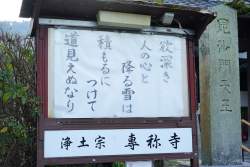 欲深き
人の心と
降る雪は
積もるに
つけて
道見えぬなり
浄土宗 専称寺
毘沙門天王